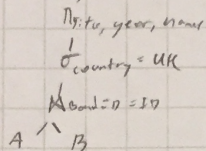 π title, year, name
σ country = UK
⋈ Band = D = ID
A B